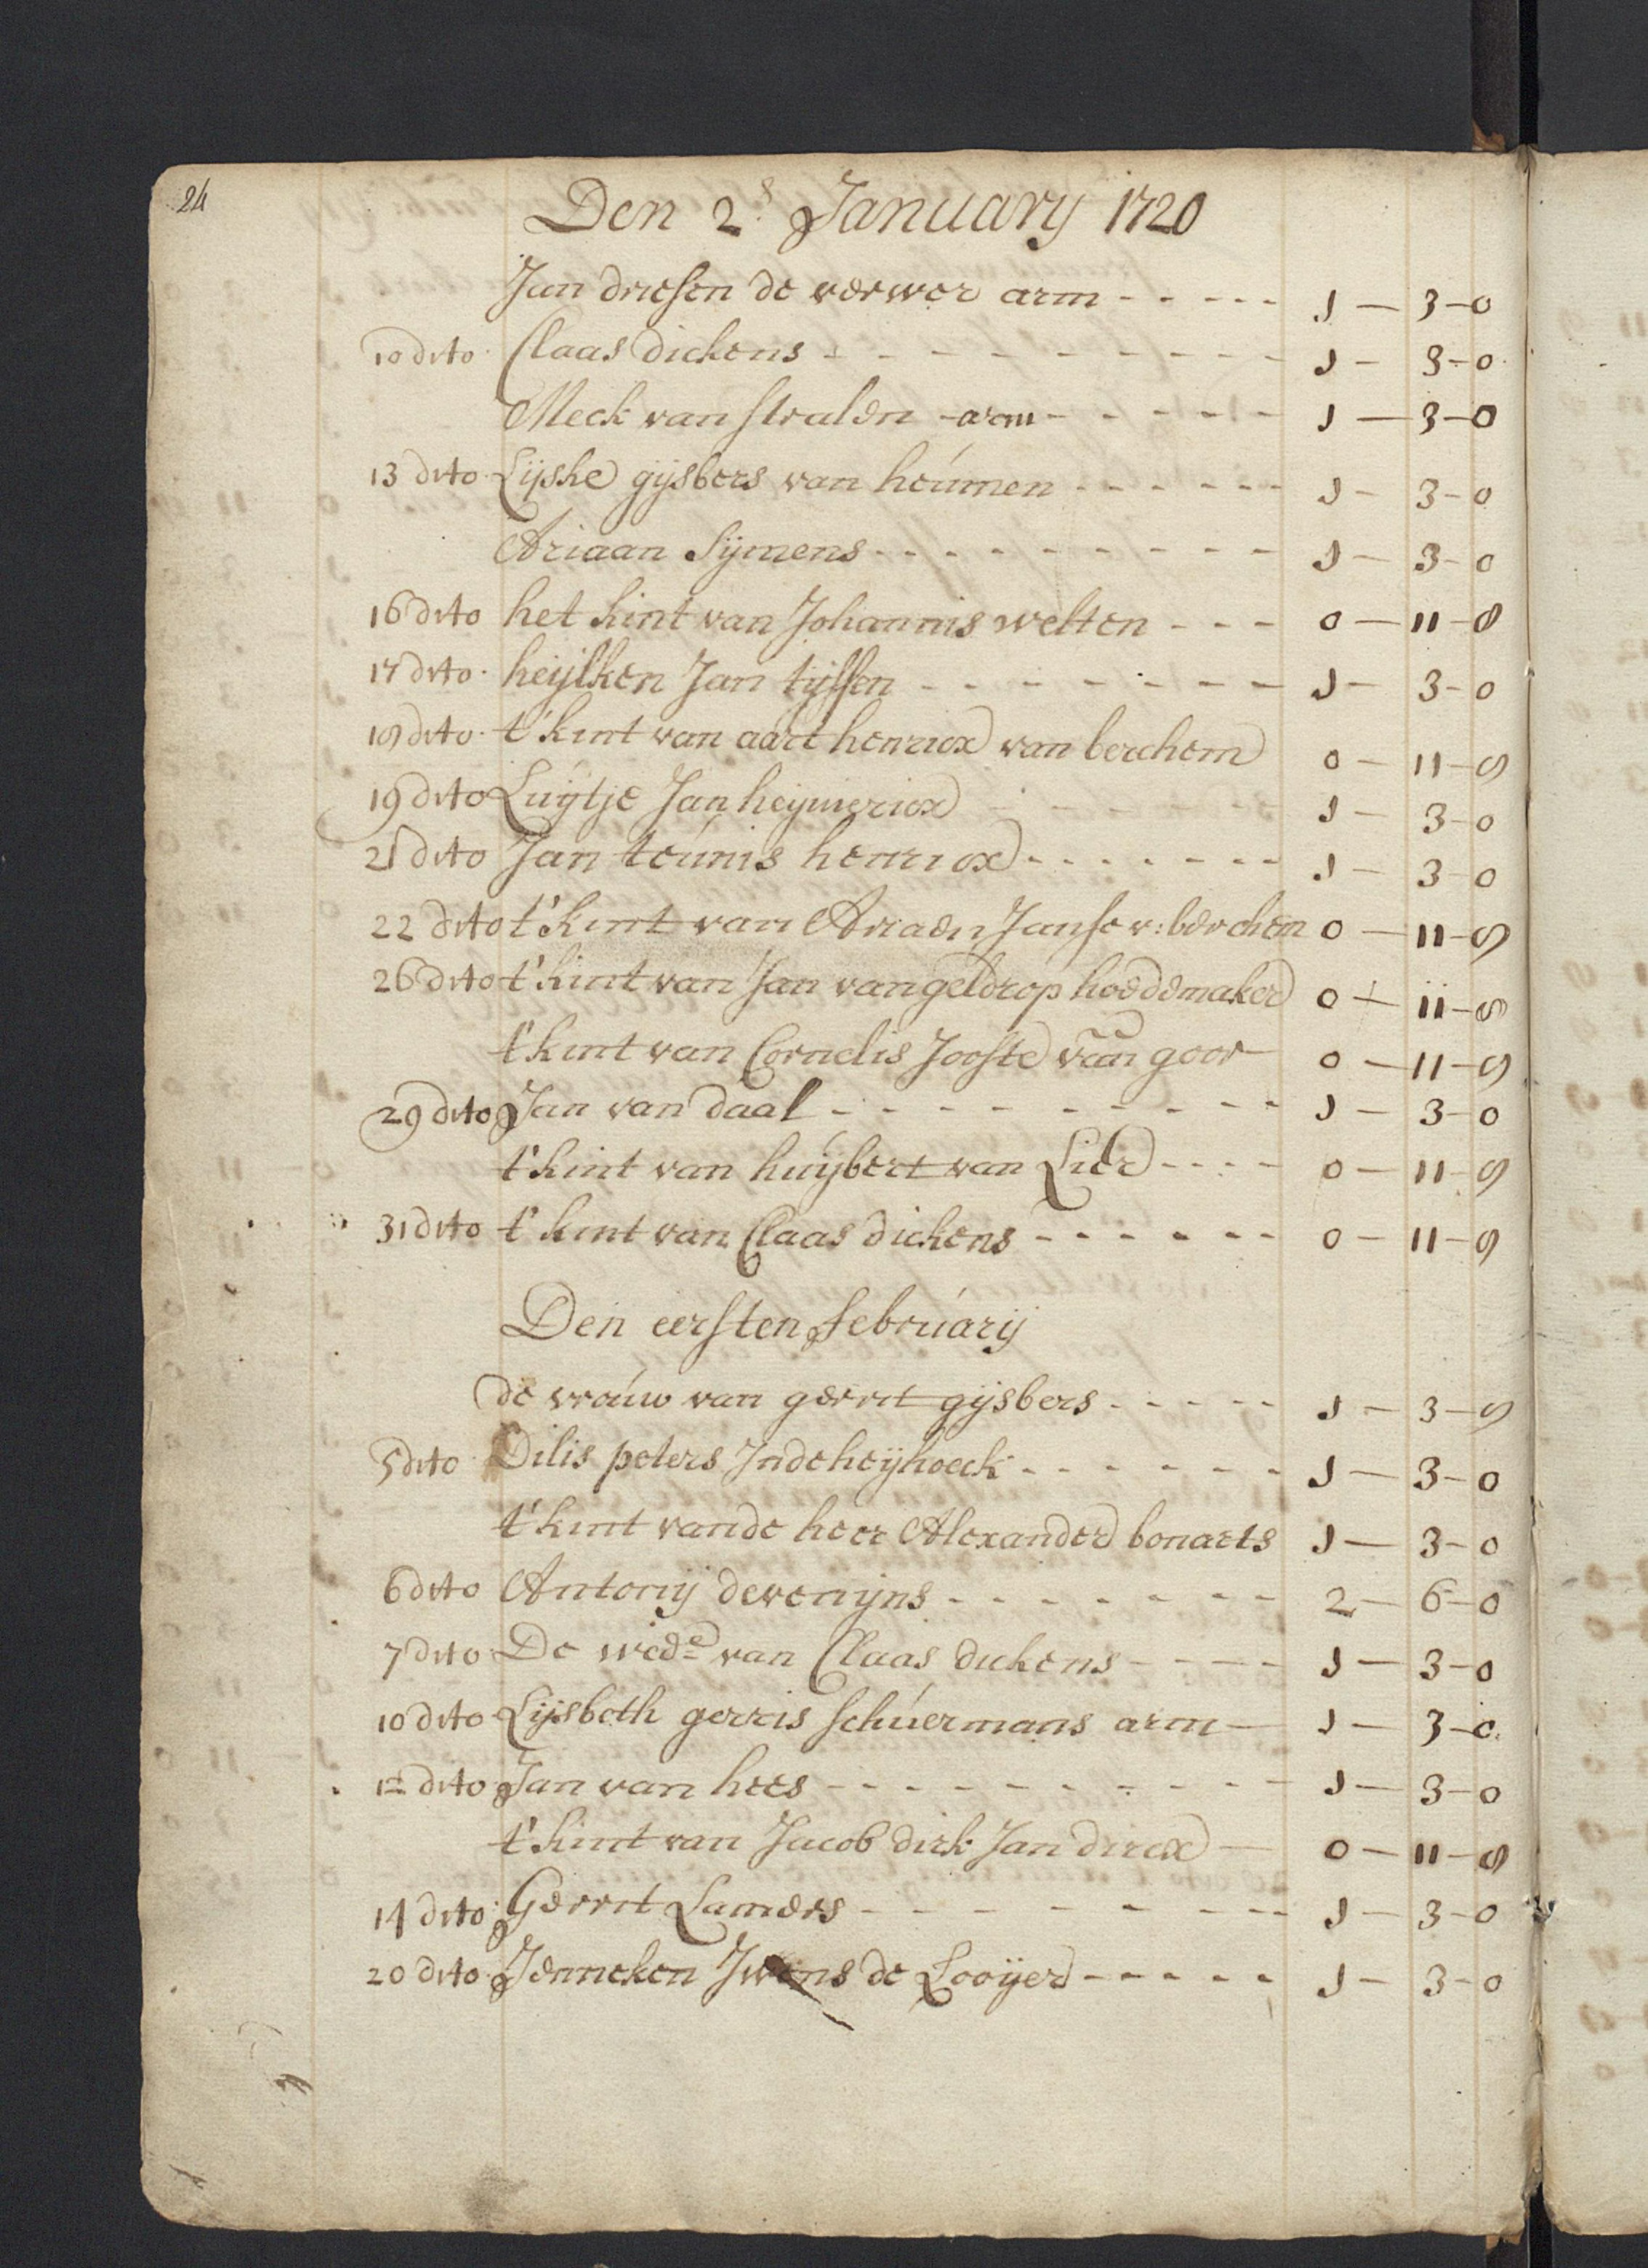 24
Den 2.s January 1720
Jan driesen de verwer arm - - - - - 1 — 3 - 0
10 dito Claas dickens - - - - - - - - - 1 — 3 - 0
Meck van stralen - arm - - - - - - 1 — 3 - 0
13 dito Lijske gijsbers van heumen - - - - - - 1 — 3 - 0
Ariaan Sijmens - - - - - - - - - - 1 — 3 - 0
16 dito het kint van Johannis welten - - - 0 — 11 - 8
17 dito heijlken Jan tijssen - - - - - - - - 1 — 3 - 0
19 dito t'kint van aart henricx van berchem 0 — 11 - 9
19 dito Luijtje Jan heijmericx - - - - - - 1 — 3 - 0
21 dito Jan teunis henricx - - - - - - - 1 — 3 - 0
22 dito t'kint van Ariaen Janse v: berchem 0 — 11 - 9
26 dito t'kint van Jan van geldrop hoedemaker 0 — 11 - 8
t'kint van Cornelis Jooste van goor 0 — 11 - 9
29 dito Jan van daal - - - - - - - - - - 1 — 3 - 0
t'kint van huijbert van Lier - - - - 0 — 11 - 9
31 dito t'kint van Claas dickens - - - - - - 0 — 11 - 9
Den eersten februarij
de vrouw van gerrit gijsbers - - - - - 1 — 3 - 9
5 dito Dilis peters Indeheijhoeck - - - - - - 1 — 3 - 0
t'kint vande heer Alexander bonarts 1 — 3 - 0
6 dito Antonij devenijns - - - - - - - - 2 — 6 - 0
7 dito De wed.e van Claas dickens - - - - 1 — 3 - 0
10 dito Lijsbeth gerris schuermans arm — 1 — 3 - 0
12 dito Jan van hees - - - - - - - - - - 1 — 3 - 0
t'kint van Jacob dirk Jan dircx — 0 — 11 - 9
14 dito Gerrit Lamers - - - - - - - - 1 — 3 - 0
20 dito Jenneken de Looijer - - - - - 1 — 3 - 0